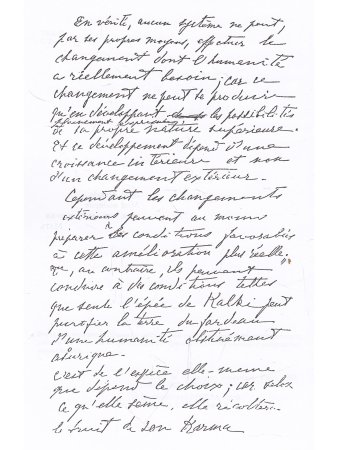 En vérité, aucun système ne peut,
par ses propres moyens, effectuer le
changement dont l'humanité
a réellement besoin; car ce
changement ne peut se produire
qu'en développant les possibilités
de sa propre nature supérieure.
Et ce développement dépend d'une
croissance intérieure et non
d'un changement extérieur.
Cependant les changements
extérieurs peuvent au moins
préparer des conditions favorables
à cette amélioration plus réelle.
ou, au contraire, ils peuvent
conduire à des conditions telles
que seule l'épée de Kalki peut
purifier la terre du fardeau
d'une humanité obstinément
asurique.
c'est de l'espèce elle-même
que dépend le choix; car selon
ce qu'elle sème, elle récoltera
le fruit de son Karma